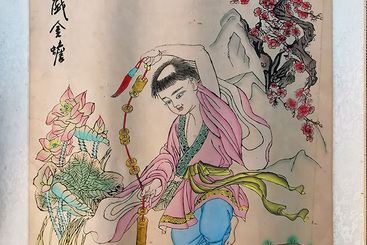 戲金蟾